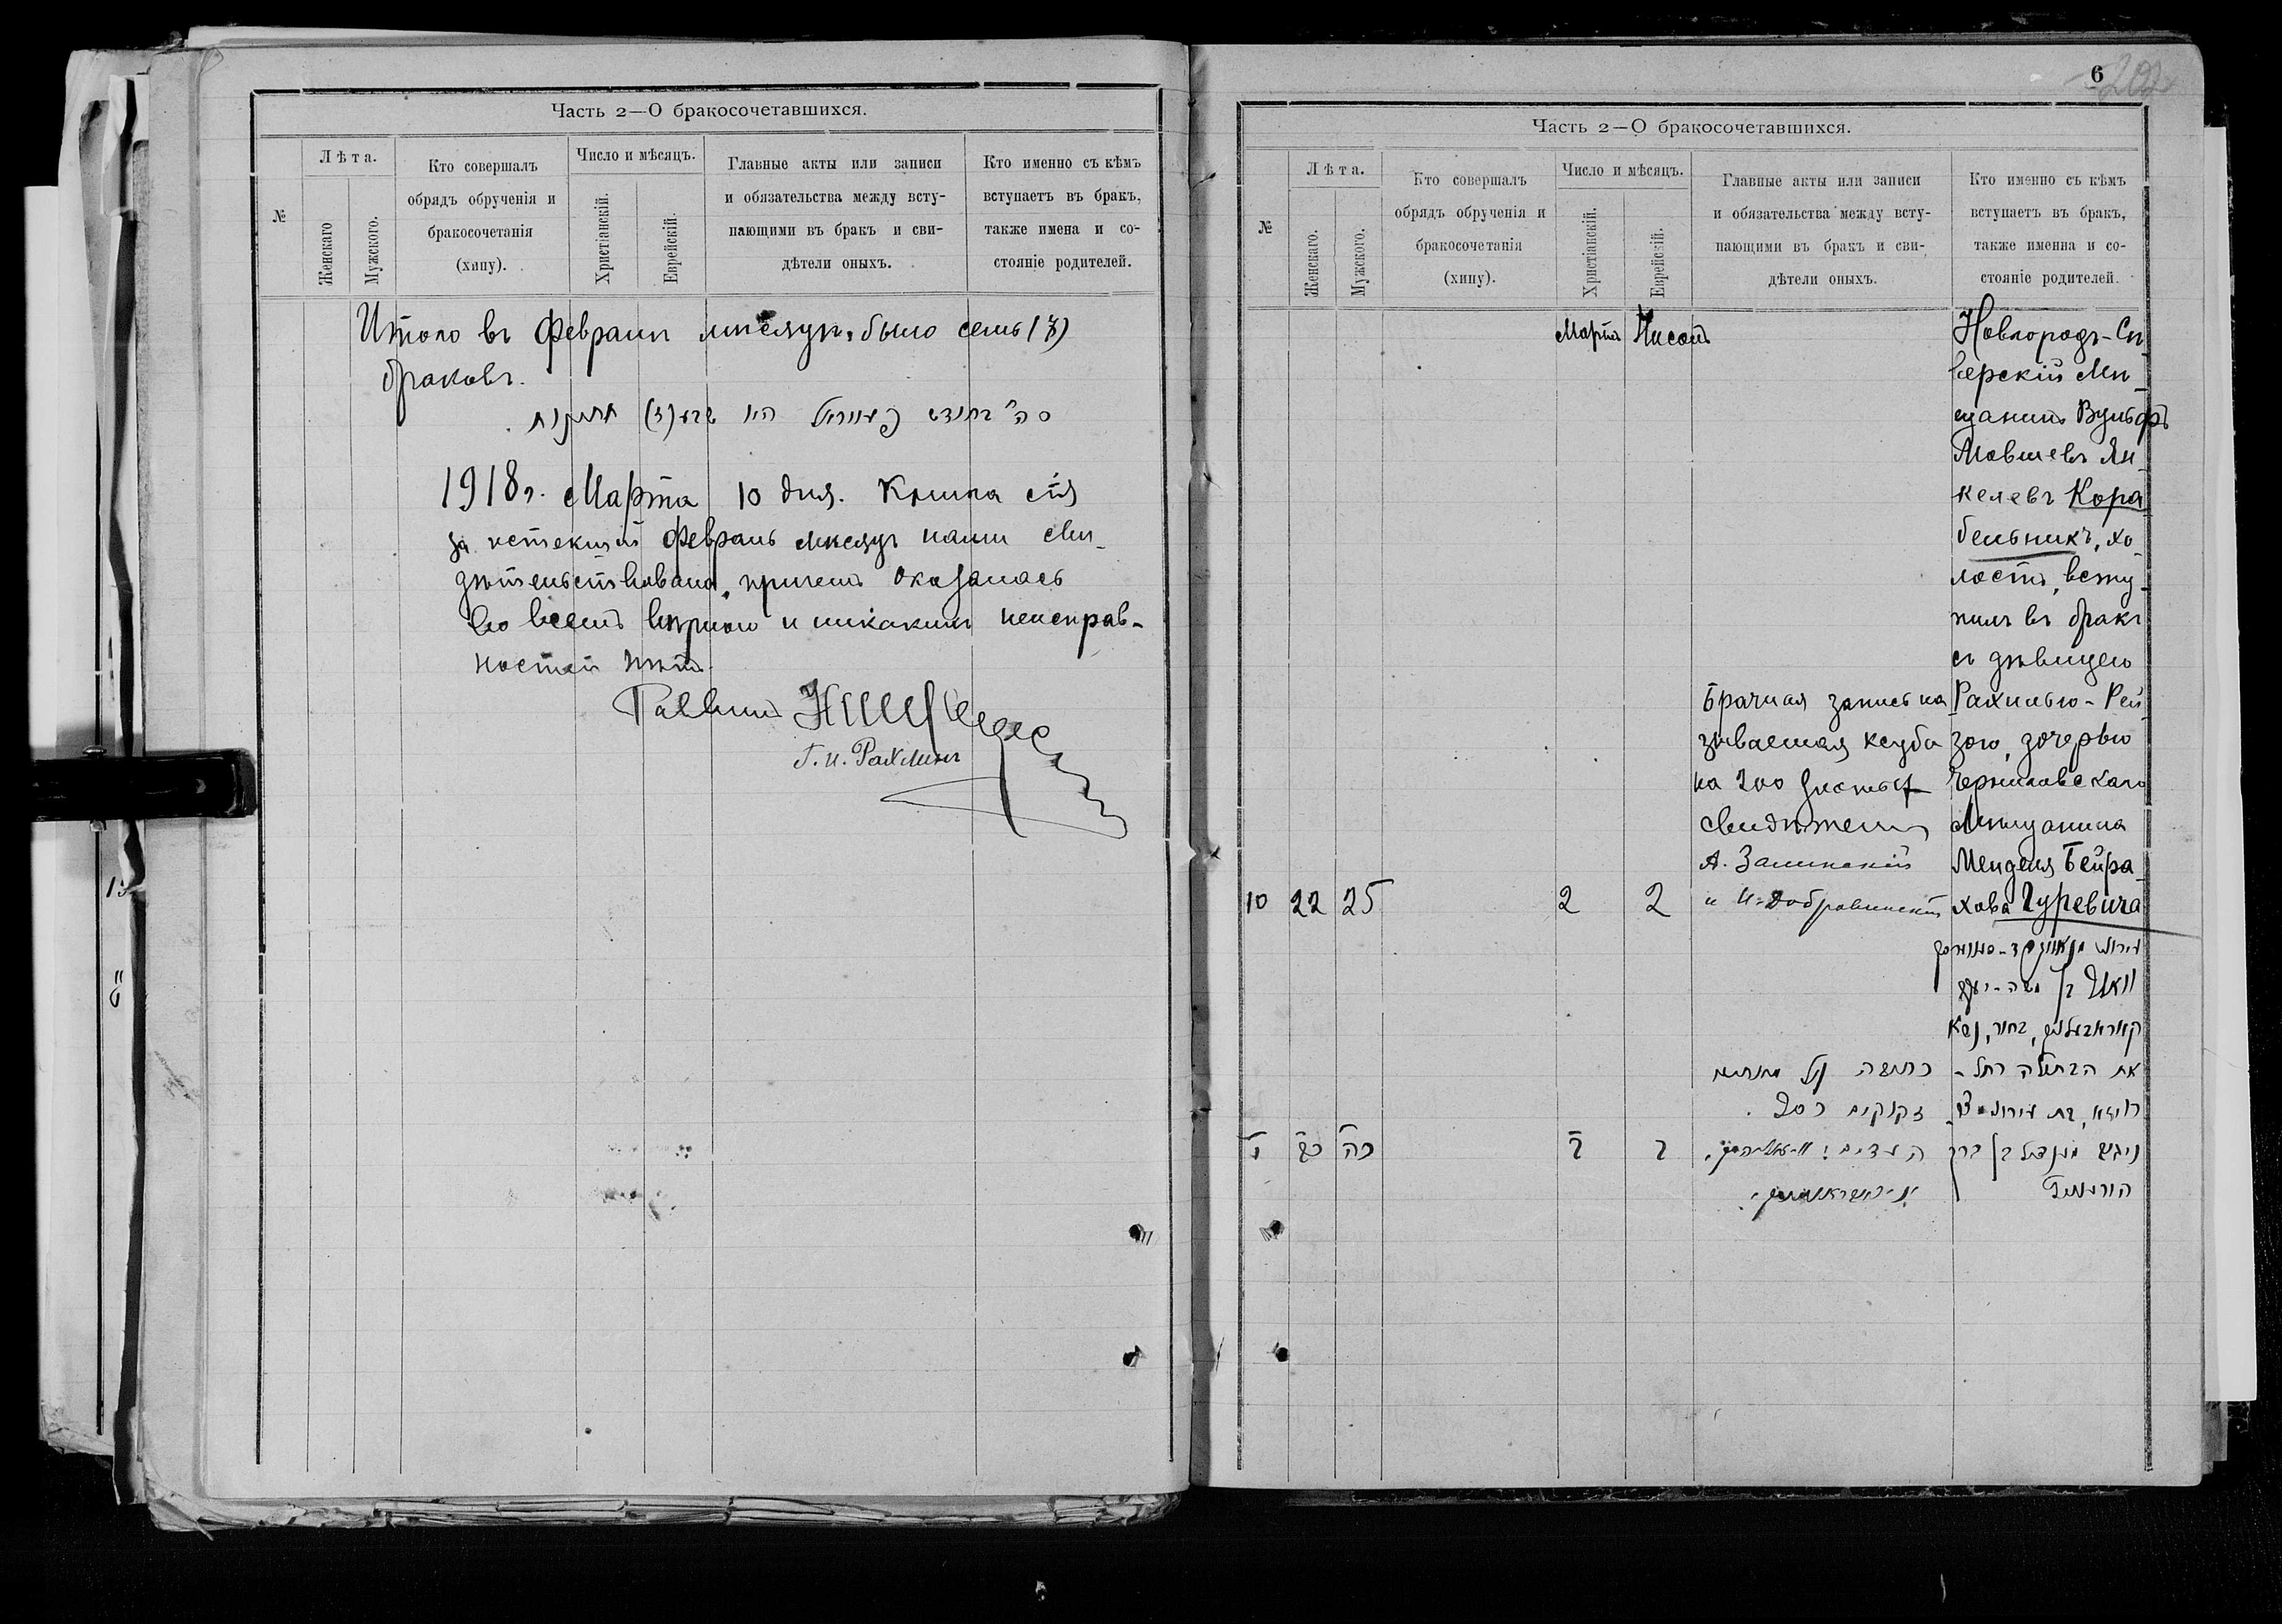 Часть 2—О бракосочетавшихся.
№
Лѣта.
Женскаго
Мужского.
Кто совершалъ
обрядъ обрученія и
бракосочетанія
(хипу).
Число и мѣсяцъ.
Христіанскій.
Еврейскій.
Главные акты или записи
и обязательства между всту-
пающими въ бракъ и сви-
дѣтели оныхъ.
Кто именно съ кѣмъ
вступаетъ въ бракъ,
также имена и со-
стояніе родителей.
Итого въ Февралѣ мѣсяцѣ было семь (7)
браковъ.
1918 г. Марта 10 дня. Книга сія
за истекшій Февраль мѣсяцъ нами сви-
дѣтельствована, причемъ оказалась
во всемъ вѣрною и никакихъ неисправ-
ностей нѣтъ.
Раввинъ
Г. И. Рахлинъ
6
Часть 2—О бракосочетавшихся.
№
Лѣта.
Женскаго.
Мужского.
Кто совершалъ
обрядъ обрученія и
бракосочетанія
(хипу).
Число и мѣсяцъ.
Христіанскій.
Еврейскій.
Главные акты или записи
и обязательства между всту-
пающими въ бракъ и сви-
дѣтели оныхъ.
Кто именно съ кѣмъ
вступаетъ въ бракъ,
также именна и со-
стояніе родителей.
Мартъ Нисонъ
10 22 25 2 2
Брачная запись на
зываемая ксуба
на 200 злотыхъ
свидѣтели
А. Залинскій
и И. Добровинскій
Новгородъ-Сѣ
верскій Мѣ-
щанинъ Вульфъ
Мовшевъ Ян-
келевъ Кора
бельникъ, хо-
лостъ, всту-
пилъ въ бракъ
съ дѣвицею
Рахилью-Рей
зою, дочерью
Черниговскаго
Мѣщанина
Менделя Бейра-
хова Гуревича
כתובה על מאתים
זקוקים כסף.
י כב כה ב ב
את הבתולה רחל-
הורוויץ